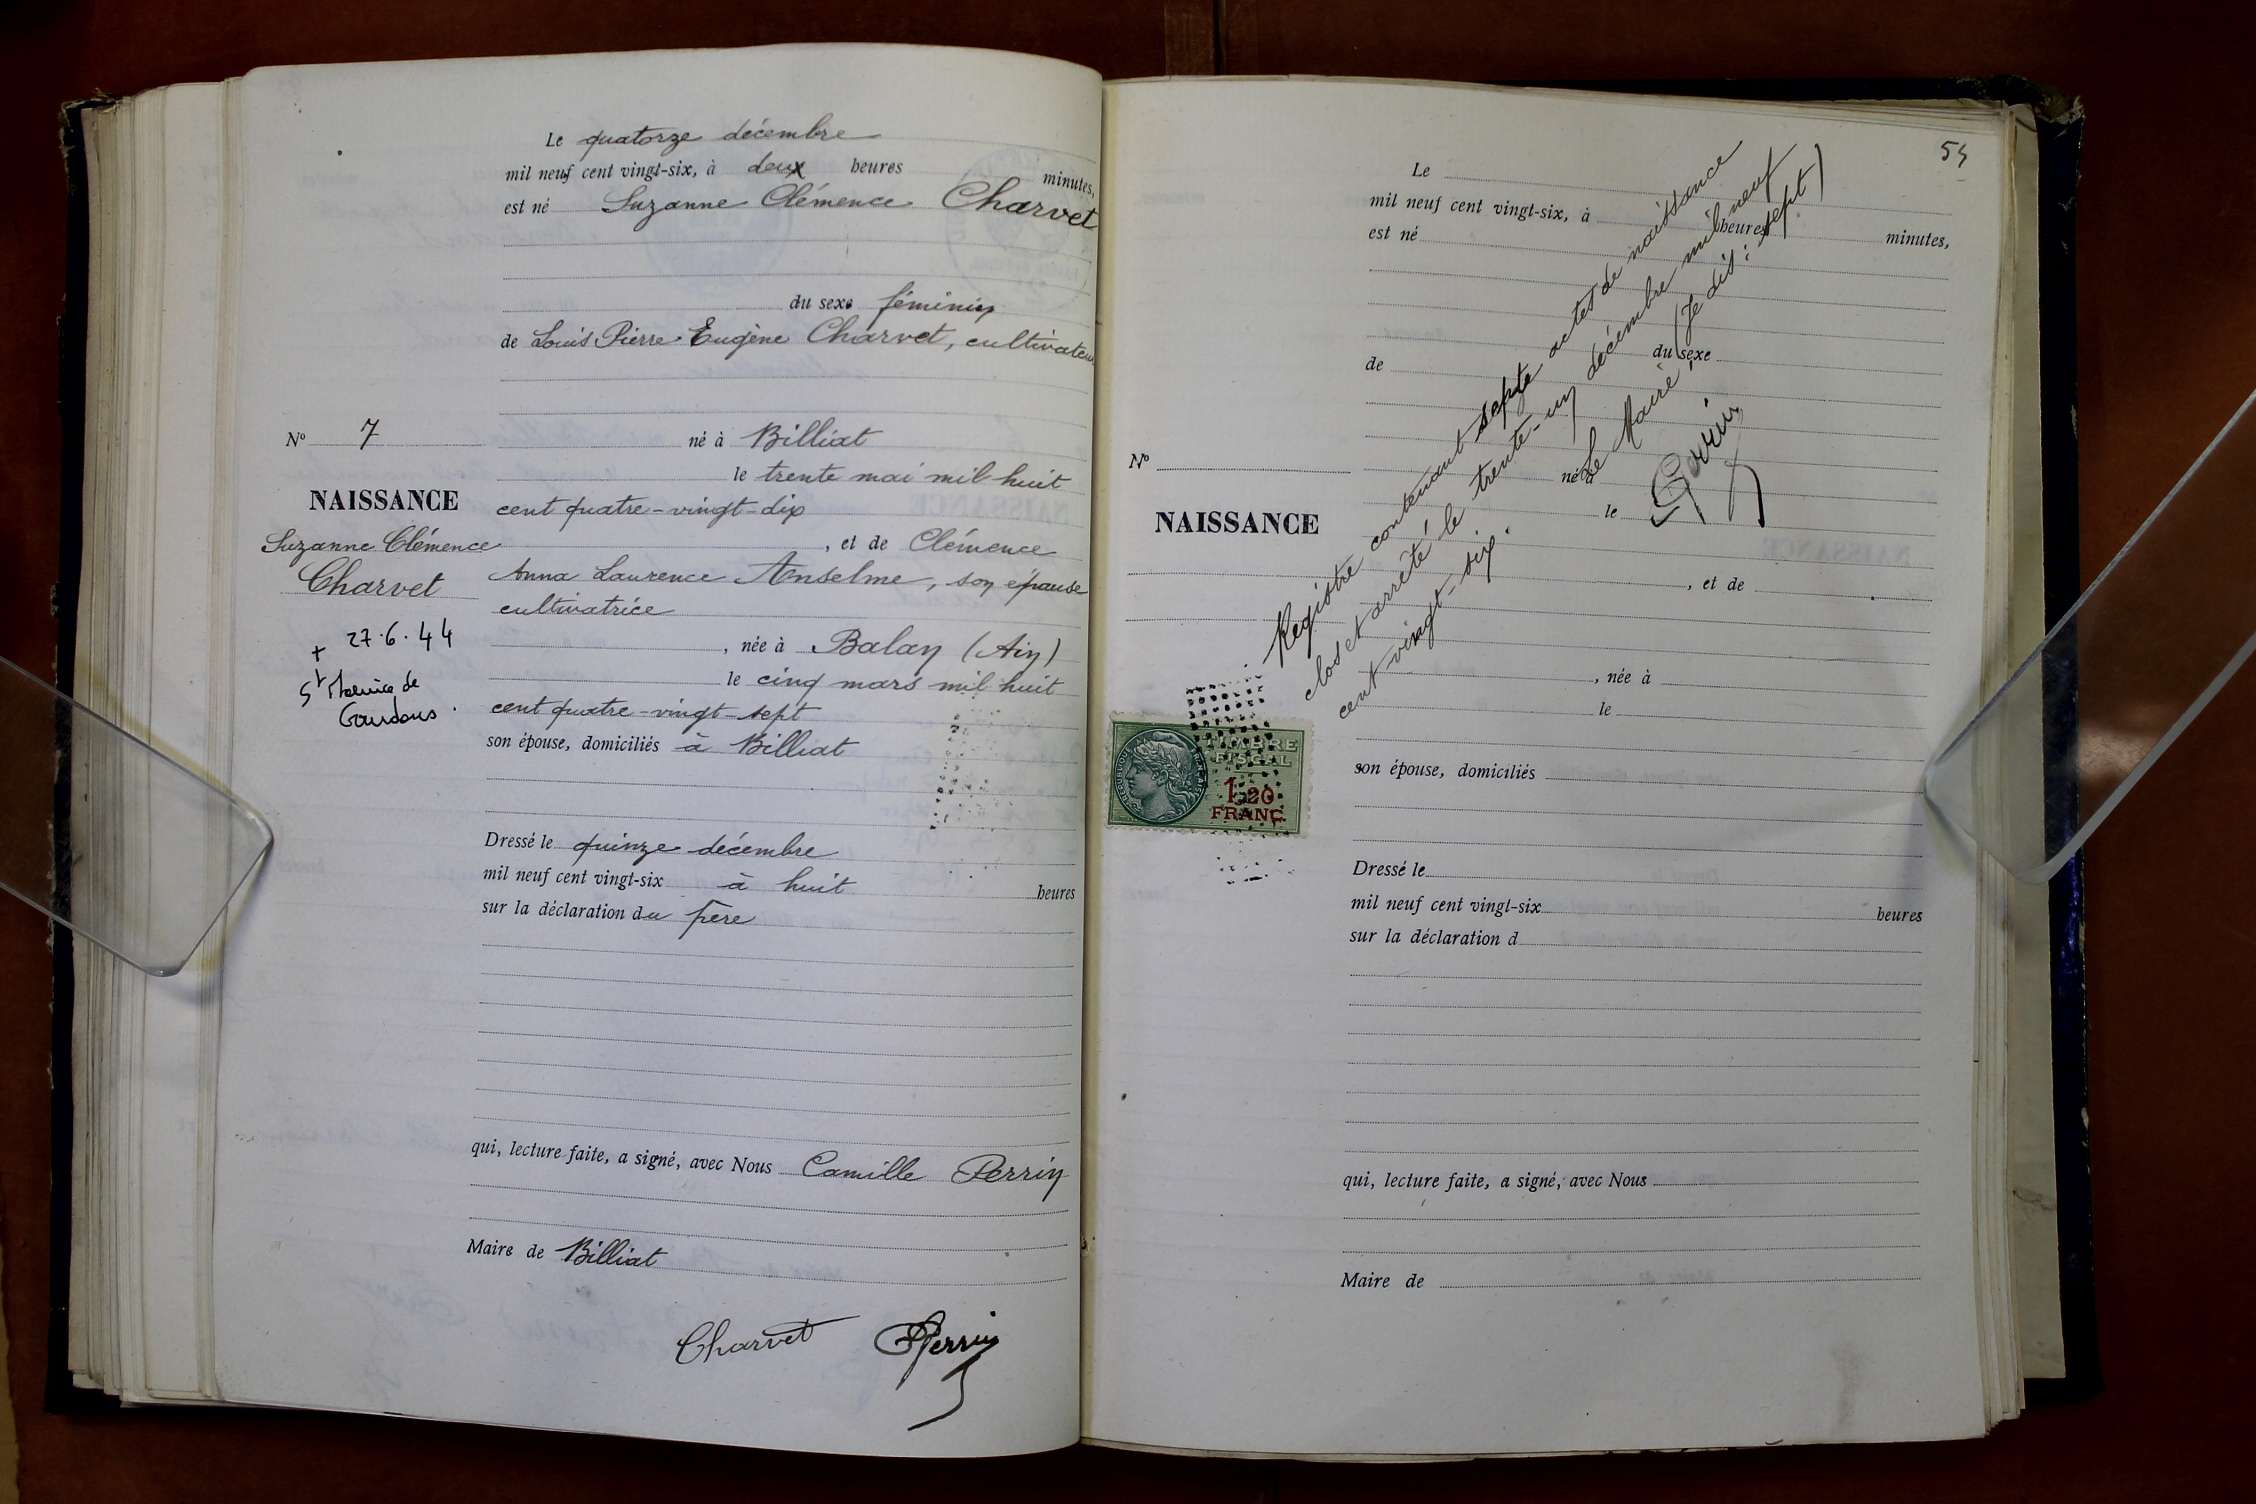 Le quatorze décembre
mil neuf cent vingt-six, à deux heures minutes,
est né Suzanne Clémence Charvet
du sexe féminin
de Louis Pierre Eugène Charvet, cultivateur
N° 7
né à Billiat
le trente mai mil huit
NAISSANCE
cent quatre-vingt-dix
Suzanne Clémence
, et de Clémence
Charvet
Anna Laurence Anselme, son épouse
cultivatrice
+ 27.6.44
St Maurice de
Gourdans.
, née à Balan (Ain)
le cinq mars mil huit
cent quatre-vingt-sept
son épouse, domiciliés à Billiat
Dressé le quinze décembre
mil neuf cent vingt-six à huit heures
sur la déclaration du père
qui, lecture faite, a signé, avec Nous Camille Perrin
Maire de Billiat
Charvet CPerrin
54
Le
mil neuf cent vingt-six, à heures minutes,
est né
du sexe
de
N°
né à
le
NAISSANCE
, et de
, née à
le
son épouse, domiciliés
Dressé le
mil neuf cent vingt-six heures
sur la déclaration d
qui, lecture faite, a signé, avec Nous
Maire de
Registre contenant sept actes de naissance
clos et arrêté le trente-un décembre mil neuf
cent vingt-six. (Je dis: sept)
Le Maire,
CPerrin
RÉPUBLIQUE FRANÇAISE
TIMBRE
FISCAL
1.20
FRANC